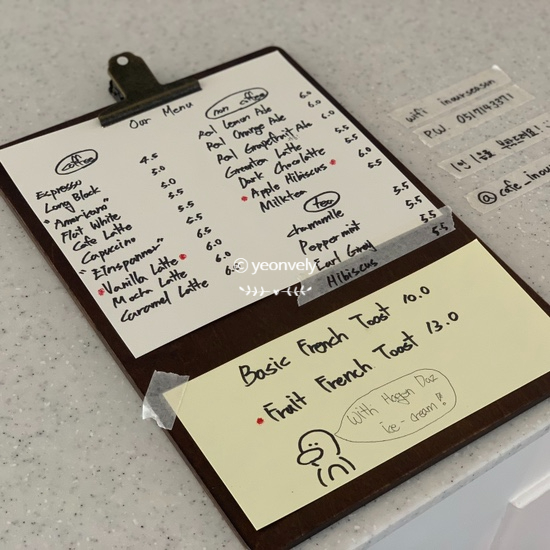 Our Menu
coffee
Espresso 4.5
Long Black 5.0
"Americano" 5.0
Flat White 5.5
Cafe Latte 5.5
Capuccino 5.5
"Einspanner" 6.0
Vanilla Latte 6.0
Mocha Latte 6.0
Caramel Latte
non coffee
Real Lemon Ade 6.0
Real Orange Ade 6.0
Real Grapefruit Ade 6.0
Greentea Latte 6.0
Dark Chocolatte 6.0
Apple Hibiscus
Milktea
tea
chamomille 5.5
Peppermint 5.5
Earl Grey 5.5
Hibiscus 5.5
ⓒ yeonvely
Basic French Toast 10.0
Fruit French Toast 13.0
With Haggen Daz
ice-cream!!
wifi inourseason
P.W. 0517143371
1인 1음료
@cafe_inou